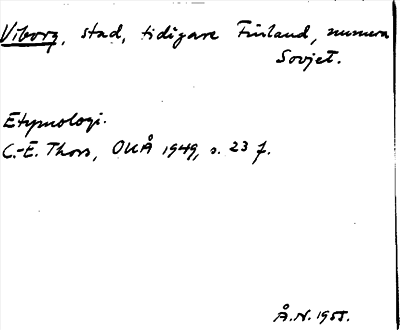 Viborg, stad, tidigare Finland, numera
Sovjet.
Etymologi.
C.-E. Thors, OUÅ 1949, s. 23 f.
Å.N. 1955.